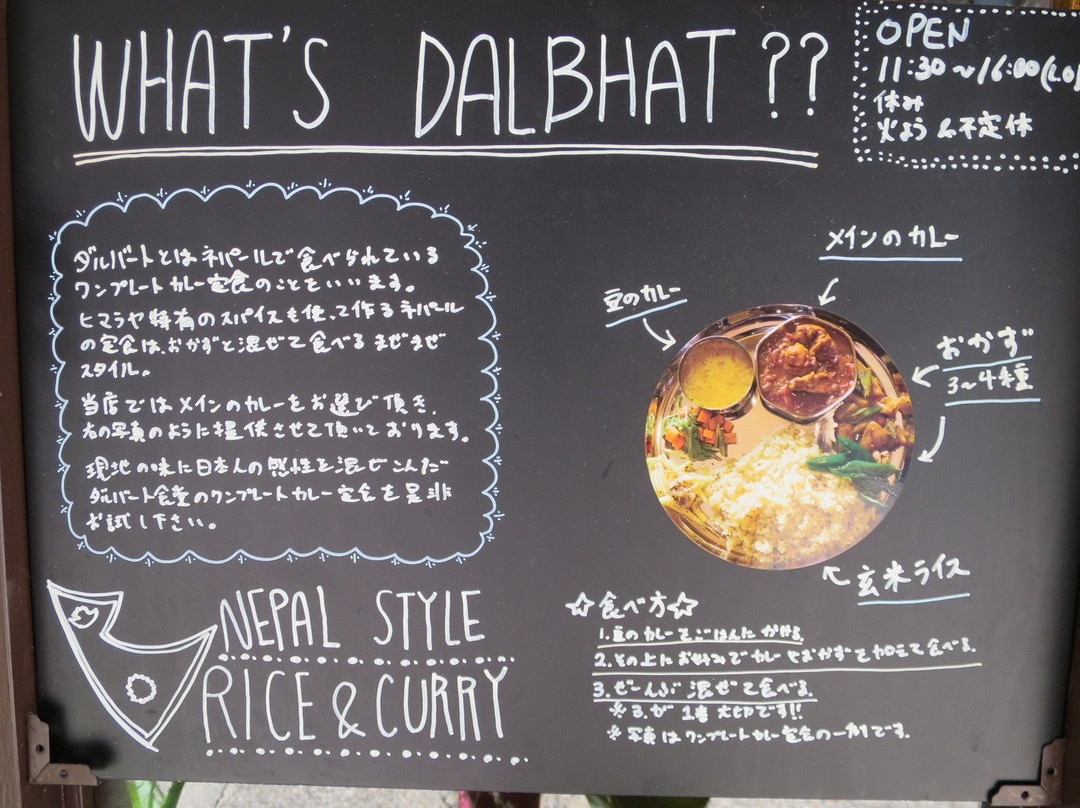 WHAT'S DALBHAT??
OPEN
11:30~16:00(L.O)
休み
火よう&不定休
ダルバートとはネパールで食べられている
ワンプレートカレー定食のことをいいます。
ヒマラヤ特有のスパイスを使って作るネパール
の定食は、おかずと混ぜて食べるまぜまぜ
スタイル。
当店ではメインのカレーをお選び頂き、
右の写真のように提供させて頂いております。
現地の味に日本人の感性を混ぜこんだ
ダルバート食堂のワンプレートカレー定食を是非
お試し下さい。
メインのカレー
豆のカレー
おかず
3~4種
玄米ライス
NEPAL STYLE
RICE & CURRY
☆食べ方☆
1.豆のカレーをごはんにかける。
2.その上にお好みでカレーやおかずを加えて食べる。
3.ぜーんぶ混ぜて食べる。
※3.が1番大切です!!
※写真はワンプレートカレー定食の一例です。